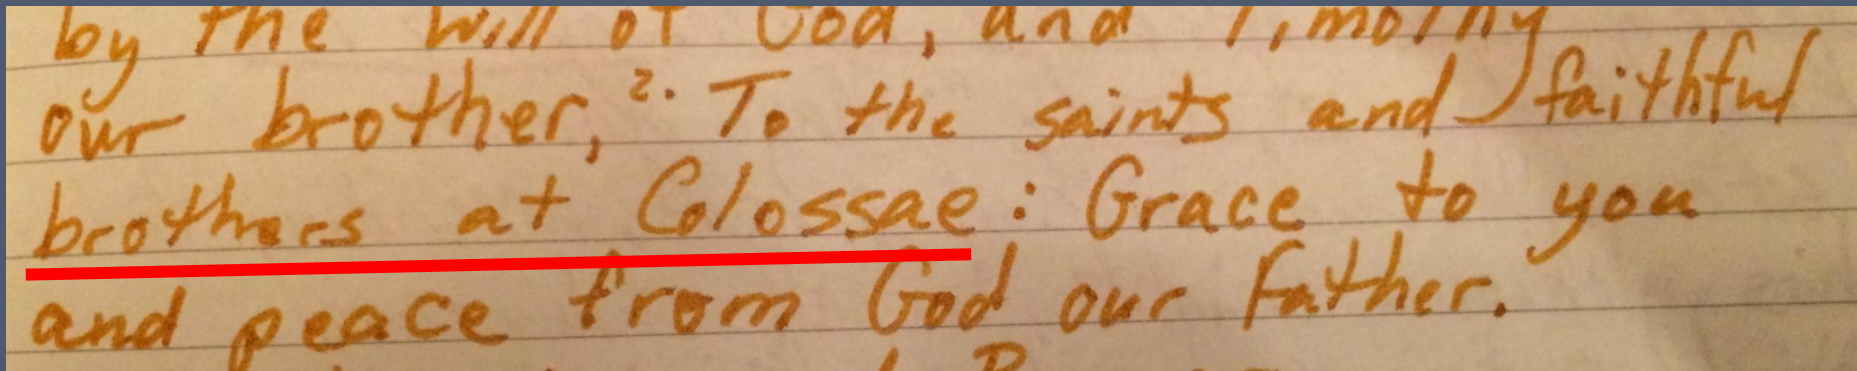 by the will of God, and Timothy
our brother, 2. To the saints and faithful
brothers at Colossae: Grace to you
and peace from God our Father.